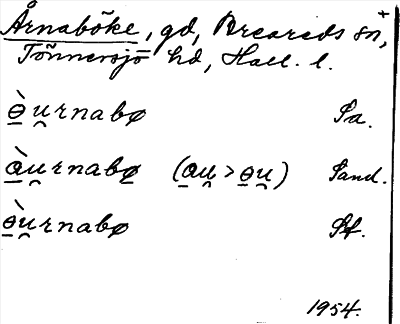 Årnaböke, gd, Breareds sn,+
Tönnersjö hd, Hall. l.
ɵ̱̀u̯rnabø Sa.
à̱u̯rnabø̱ (a̱u̯ > ɵ̱u̯) Sand.
ɵ̱̀u̯rnabø Sf.
1954.